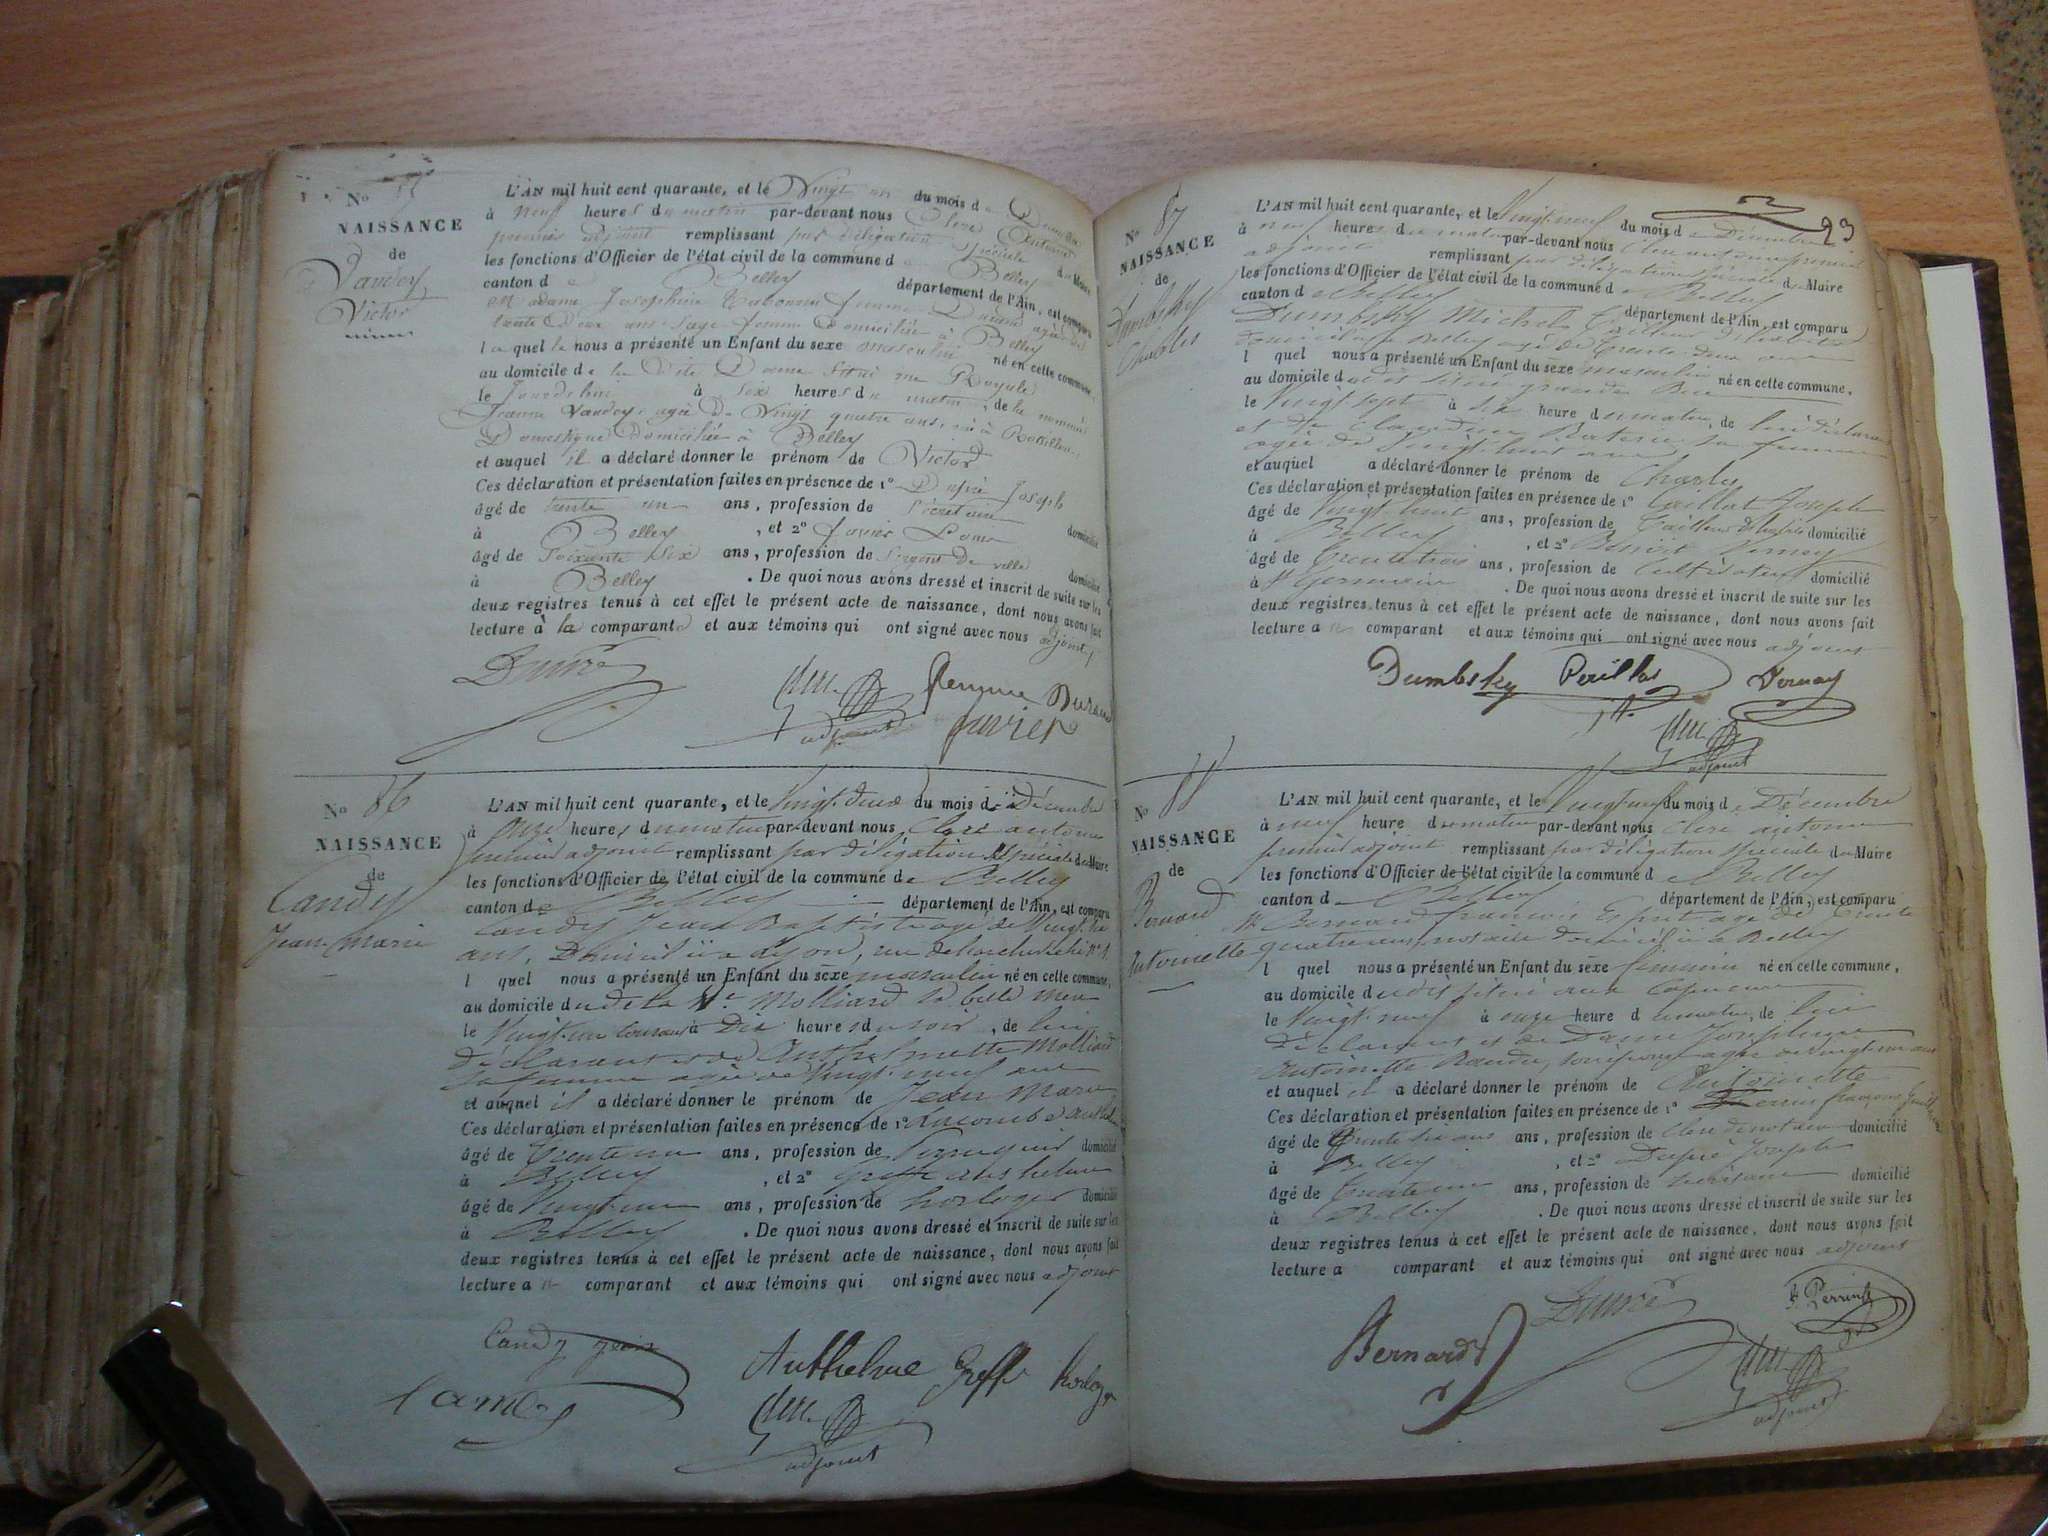 No
NAISSANCE
de
Vandey
Victor
L'AN mil huit cent quarante, et le Vingt un du mois de Décembre
à neuf heures du matin par-devant nous Clerc Antoine
premier adjoint remplissant par délégation spéciale du Maire
les fonctions d'Officier de l'état civil de la commune de Belley
canton de Belley département de l'Ain, est comparu
Madame Josephine femme Durand agée de
trente deux ans Sage femme Domiciliée à Belley
laquelle nous a présenté un Enfant du sexe masculin né en cette commune,
au domicile de la dite Dame Situé rue Royale
le Jourdehui à six heures du matin, de la nommée
Jeanne Vandey agée de Vingt quatre ans, née à
Domestique Domiciliée à Belley
et auquel il a déclaré donner le prénom de Victor
Ces déclaration et présentation faites en présence de 1° Dupré Joseph
âgé de trente un ans, profession de Sécretaire domicilié
à Belley, et 2° Juvier
âgé de Soixante Six ans, profession de Sergent De ville domicilié
à Belley. De quoi nous avons dressé et inscrit de suite sur les
deux registres tenus à cet effet le présent acte de naissance, dont nous avons fait
lecture à la comparante et aux témoins qui ont signé avec nous adjoint
Dupré
femme Durand
adjoint
Juvier
No 86
NAISSANCE
de
Candy
Jean-Marie
L'AN mil huit cent quarante, et le Vingt-deux du mois de Décembre
à Onze heures du matin par-devant nous Clerc antoine
premier adjoint remplissant par délégation Spéciale du Maire
les fonctions d'Officier de l'état civil de la commune de Belley
canton de Belley département de l'Ain, est comparu
Candy Jean Baptiste agé de Vingt
ans, Domicilié a Lyon, rue
l quel nous a présenté un Enfant du sexe masculin né en cette commune,
au domicile de la Molliard Sa belle mere
le Vingt-un Courant à Dix heures du soir, de lui
déclarant et de Anthelmette Molliard
Sa femme agée de Vingt-neuf ans
et auquel il a déclaré donner le prénom de Jean Marie
Ces déclaration et présentation faites en présence de 1° Lacombe
âgé de Trente un ans, profession de Perruquier domicilié
à Belley, et 2° Greffe Anthelme
âgé de Vingt-un ans, profession de horloger domicilié
à Belley. De quoi nous avons dressé et inscrit de suite sur les
deux registres tenus à cet effet le présent acte de naissance, dont nous avons fait
lecture a comparant et aux témoins qui ont signé avec nous adjoint
Candy
Anthelme Greffe horloger
adjoint
23
No 87
NAISSANCE
de
Dumbsky
Charles
L'AN mil huit cent quarante, et le Vingt-neuf du mois de Décembre
à neuf heure du matin par-devant nous Clerc antoine premier
adjoint remplissant par délégation spéciale du Maire
les fonctions d'Officier de l'état civil de la commune de Belley
canton de Belley département de l'Ain, est comparu
Dumbsky Michel Tailleur d'habits
domicilié a Belley agé de Trente deux ans
l quel nous a présenté un Enfant du sexe masculin né en cette commune,
au domicile dudit situé grande Rue
le Vingt sept à Six heure du matin, de lui déclarant
et de Claudine sa femme
agée de Vingt-huit ans
et auquel a déclaré donner le prénom de Charles
Ces déclaration et présentation faites en présence de 1° Joseph
âgé de Vingt-huit ans, profession de Tailleur d'habits domicilié
à Belley, et 2° Benoit Vernay
âgé de Trente trois ans, profession de Cultivateur domicilié
à St Germain. De quoi nous avons dressé et inscrit de suite sur les
deux registres tenus à cet effet le présent acte de naissance, dont nous avons fait
lecture a comparant et aux témoins qui ont signé avec nous adjoint
Dumbsky Vernay
adjoint
No 88
NAISSANCE
de
Bernard
Antoinette
L'AN mil huit cent quarante, et le Vingt neuf du mois de Décembre
à neuf heure du matin par-devant nous Clerc antoine
premier adjoint remplissant par délégation spéciale du Maire
les fonctions d'Officier de l'état civil de la commune de Belley
canton de Belley département de l'Ain, est comparu
Mr Bernard francois Esprit agé de Trente
quatre ans notaire domicilié à Belley
l quel nous a présenté un Enfant du sexe feminin né en cette commune,
au domicile dudit situé aux Capucins
le Vingt-neuf à onze heure du matin, de lui
déclarant et de Dame Josephine
Antoinette son épouse agée de vingt-un ans
et auquel il a déclaré donner le prénom de Antoinette
Ces déclaration et présentation faites en présence de 1° Perrin françois
âgé de Trente six ans ans, profession de Clerc de notaire domicilié
à Belley, et 2° Dupré Joseph
âgé de Trente un ans, profession de Sécrétaire domicilié
à Belley. De quoi nous avons dressé et inscrit de suite sur les
deux registres tenus à cet effet le présent acte de naissance, dont nous avons fait
lecture a comparant et aux témoins qui ont signé avec nous adjoint
Dupré
Bernard
adjoint